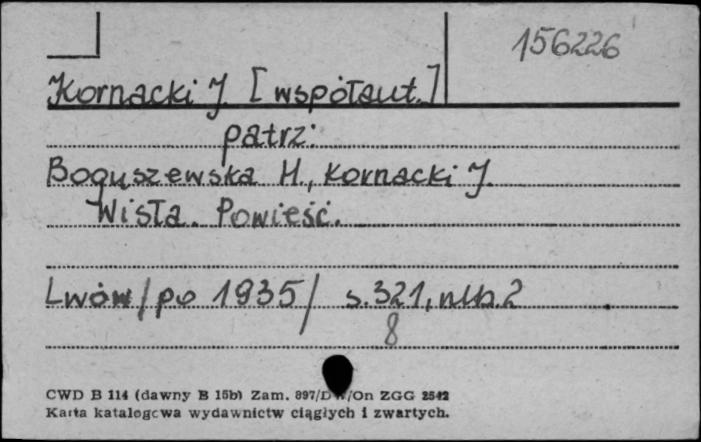 156226
Kornacki J. [współaut.]
patrz:
Boguszewska H., Kornacki J.
Wisła. Powieść.
Lwów /po 1935/ s. 321, nlb. 2
8
CWD B 114 (dawny B 15b) Zam. 897/DW/On ZGG 2542
Karta katalogowa wydawnictw ciągłych i zwartych.